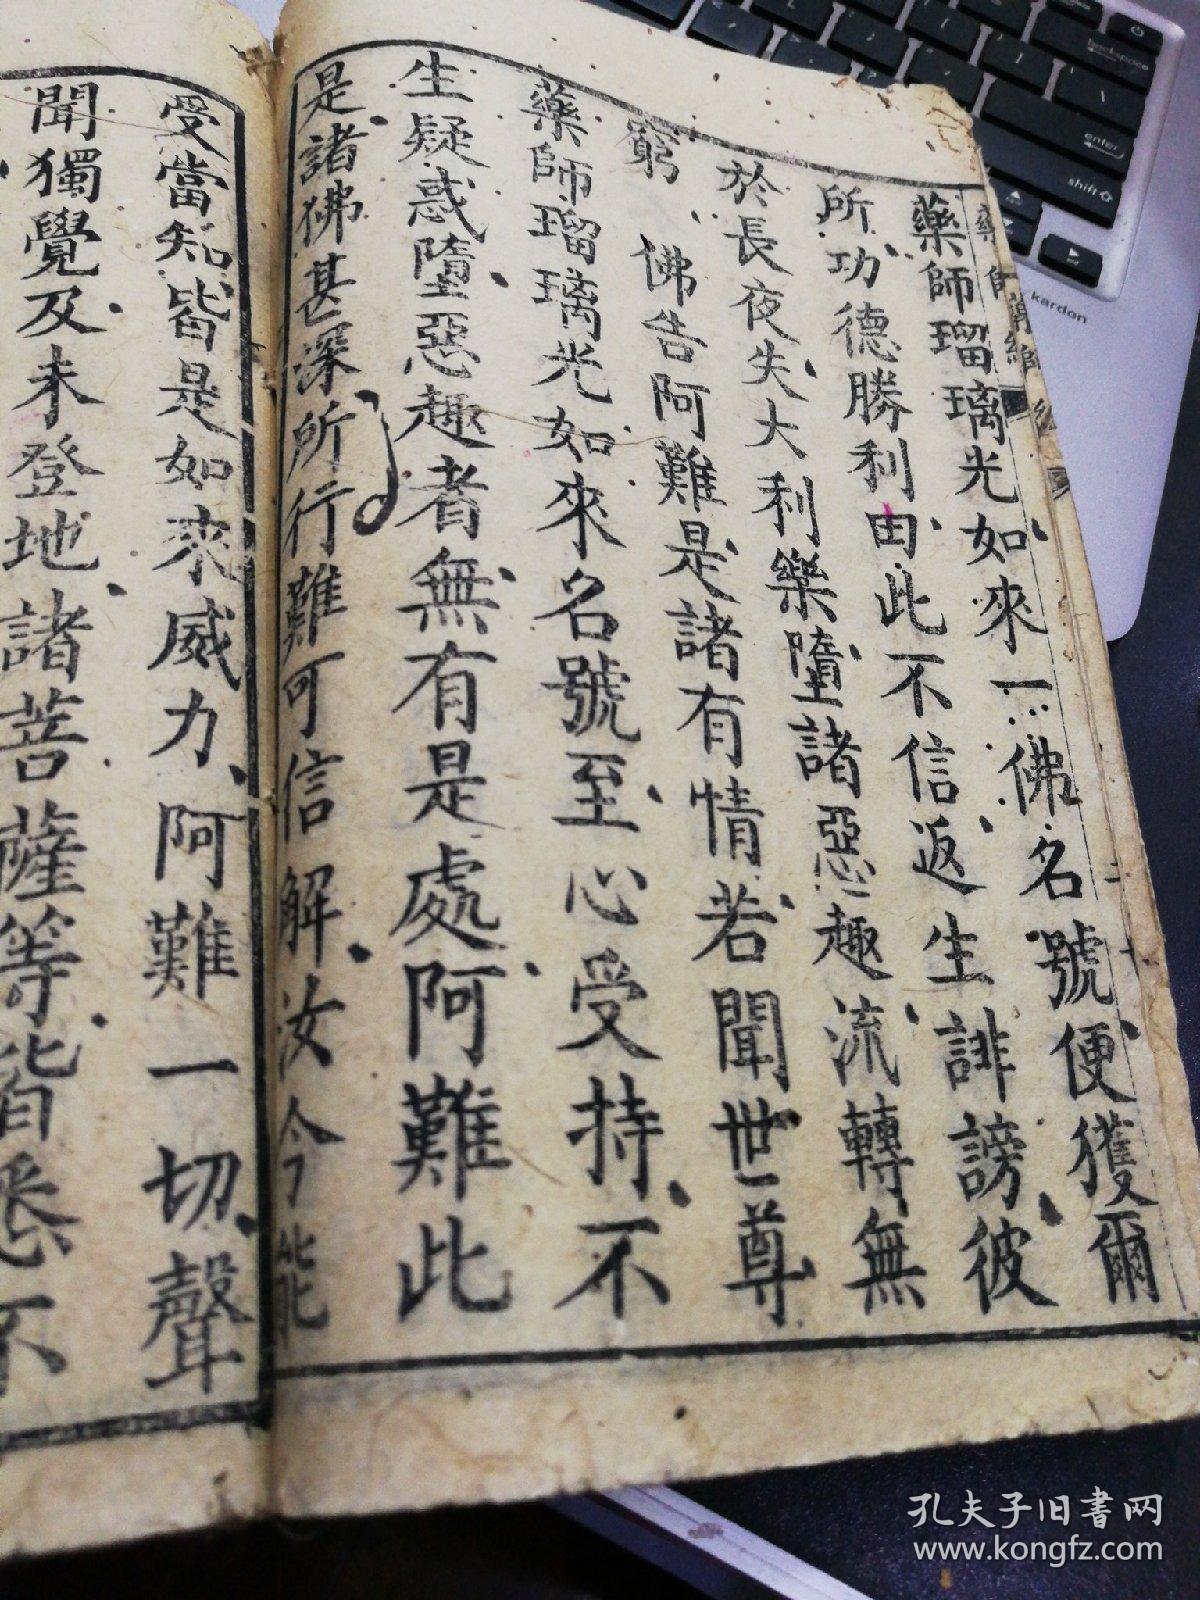 藥師瑠璃光如來一佛名號便獲爾
所功德勝利由此不信返生誹謗彼
於長夜失大利樂墮諸惡趣流轉無
窮 佛告阿難是諸有情若聞世尊
藥師瑠璃光如來名號至心受持不
生疑惑墮惡趣者無有是處阿難此
是諸佛甚深所行難可信解汝今能
受當知皆是如來威力阿難一切聲
聞獨覺及未登地諸菩薩等皆悉不
backspace
enter
shift
kardon
孔夫子旧书网
www.kongfz.com